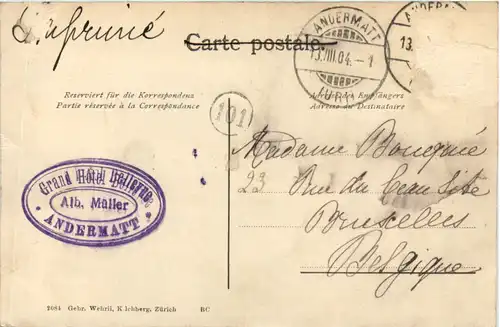 Imprimé
Carte postale.
ANDERMATT
13.VIII.04.-1
(URI)
ANDERM
13.
Reserviert für die Korrespondenz
Partie réservée à la Correspondance
Adresse des Empfängers
Adresse du Destinataire
101
Madame Bouquié
23 Rue du Beau Site
Bruxelles
Belgique
Grand Hôtel Bellevue
Alb. Müller
ANDERMATT
2084 Gebr. Wehrli, Kilchberg, Zürich BC